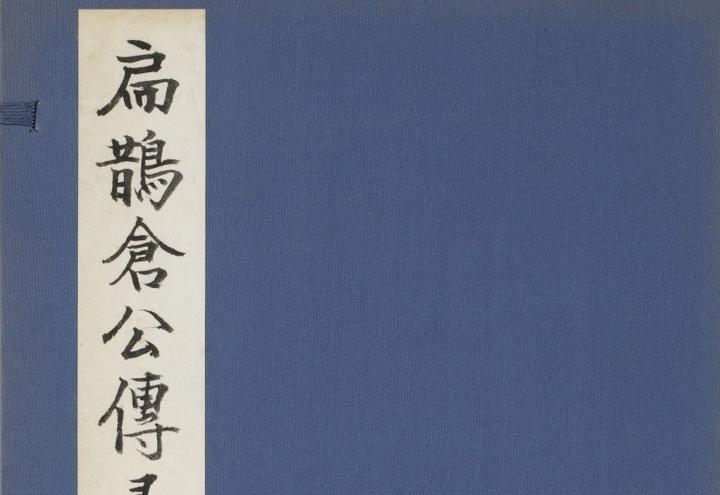 扁鵲倉公傳